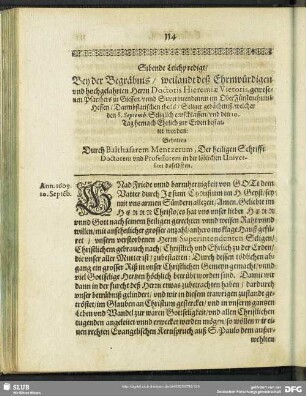 114
Siebende Leichpredigt/
Bey der Begräbnis / weilandt deß Ehrnwürdigen
vnd hochgelahrten Herrn Doctoris Hieremiæ Vietoris, gewese-
nen Pfarrherrs in Giessen vnnd Superintendenten im
Hessen /
den 8. Septemb. Seliglich entschlaffen / vnd den 10.
Tag hernach Ehrlich zur Erden bestat-
tet worden:
Gehalten
Durch Balthasarem Mentzerum, Der heiligen Schrifft
Doctorem vnd Professorem in der löblichen Univer-
sitet daselbsten.
Ann. 1609.
10. Septéb.
GNad Friede vnnd barmhertzigkeit von GOTT dem
Vatter durch Jesum Christum im H. Geist / sey
mit vns armen Sündern allezeit / Amen. Geliebte im
HERRN Christo / es hat vns vnser lieber HERR
vnnd Gott nach seinem heiligen gerechten vnnd weisen Raht vnnd
willen / mit ansehnlicher grosser anzahl anhero ins Klage Hauß gefüh-
ret / vnsern verstorbnen Herrn Superintendenten Seligen/
Christlichem gebrauch nach Christlich vnd Ehrlich zu der Erden/
die vnser aller Mutter ist / zubestatten: Durch dessen tödlichen ab-
gang ein grosser Riß in vnser Christlichen Gemein gemacht / vnnd
viel Gottselige Hertzen höchlich betrübt worden sind. Damit wir
dann in der furcht deß Herrn etwas zubetrachten haben / dardurch
vnser betrübnuß gelindert / vnd wir in diesem trawrigen zustand ge-
tröstet / im Glauben an Christum gestercket / vnd in vnserm gantzen
Leben vnd Wandel zur waren Gottseligkeit / vnd allen Christlichen
tugenden angeleitet vnnd erwecket werden mögen / so wöllen wir ei-
nen rechten Evangelischen Kernspruch auß S. Paulo dem außer-
wehlten
SLUB
Wir führen Wissen.